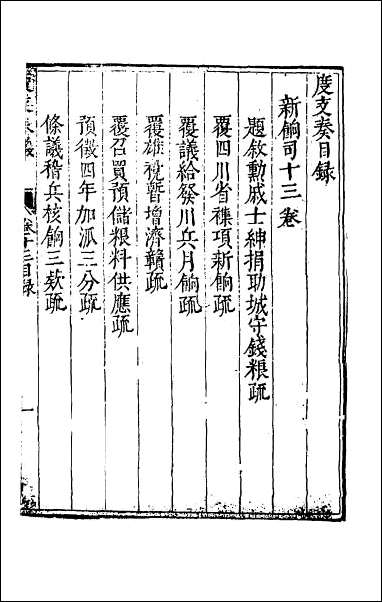 度支奏目録
新餉司十三卷
題敘勳戚士紳捐助城守錢粮疏
覆四川省襍項新餉疏
覆議給發川兵月餉疏
覆雄稅暫增濟贛疏
覆召買預儲粮料供應疏
預徵四年加派三分疏
條議稽兵核餉三欵疏
卷十三目録
一